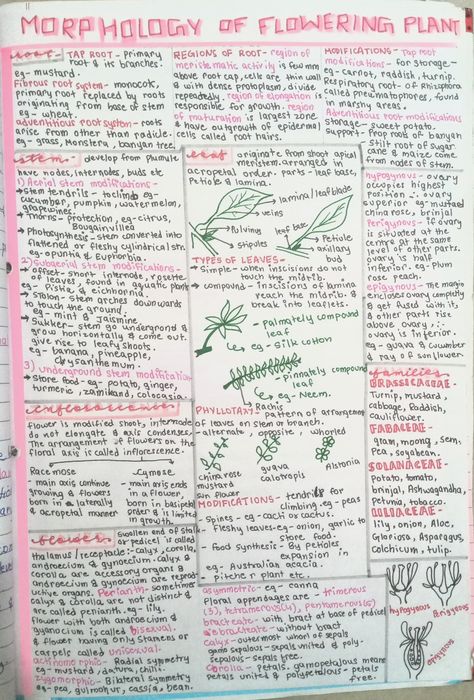 MORPHOLOGY OF FLOWERING PLANT
Root - TAP ROOT - primary
root & its branches.
eg - mustard.
Fibrous root system - monocots,
primary root replaced by roots
originating from base of stem
eg - wheat.
adventitious root system - roots
arise from other than radicle.
eg - grass, Monstera, banyan tree.
REGIONS OF ROOT - region of
meristematic activity is few mm
above root cap, cells are thin wall
& with dense protoplasm, divide
repeatedly. region of elongation is
responsible for growth. region
of maturation is largest zone
& have outgrowth of epidermal
cells called root hairs.
MODIFICATIONS - Tap root
modifications - for storage -
eg - carrot, raddish, turnip.
Respiratory root - of Rhizophora
called pneumatophores, found
in marshy areas.
Adventitious root modifications
storage - sweet potato.
Support - Prop roots of banyan
- stilt root of sugar
cane & maize come
from nodes of stem.
Stem - develop from plumule
have nodes, internodes, buds etc
1) Aerial stem modifications -
→ Stem tendrils - to climb eg -
cucumber, pumpkin, watermelon,
grapevines.
→ Thorns - protection, eg - citrus,
Bougainvillea
→ Photosynthesis - stem converted into
flattened or fleshy cylindrical str.
eg - opuntia & Euphorbia.
2) Subaerial stem modifications -
→ offset - shorter internode, rosette
of leaves, found in aquatic plants
eg - Pistia, & eichhornia.
→ Stolon - stem arches downwards
to touch the ground,
eg - mint & Jasmine.
→ Sukker - stem go underground &
grow horizontally & come out.
give rise to leafy shoots.
eg - banana, pineapple,
chrysanthemum.
3) Underground stem modification
→ Store food - eg - potato, ginger,
turmeric, zaminkand, colocasia.
Leaf - originate from shoot apical
meristem. arranged in
acropetal order. parts - leaf base,
Petiole & lamina.
lamina/leaf blade
veins
Pulvinus
stipules
leaf base
Petiole
axillary
bud
TYPES OF LEAVES -
→ Simple - when incisions do not
touch the midrib.
→ compound - incisions of lamina
reach the midrib &
break into leaflets.
Palmately compound
leaf
eg - Silk cotton
pinnately compound
leaf
eg - Neem.
Rachis
PHYLLOTAXY - pattern of arrangement
of leaves on stem or branch.
- alternate, opposite, whorled
china rose
mustard
sun flower
guava
calotropis
Alstonia
MODIFICATIONS - tendrils for
climbing. eg - peas
- Spines - eg - cacti or cactus.
- Fleshy leaves - eg - onion, garlic to
store food.
- Food synthesis - By petioles
expansion in
eg - Australian acacia.
- pitcher plant etc.
hypogynous - ovary
occupies highest
position ∴ ovary
superior eg - mustard
china rose, brinjal
Perigynous - if ovary
is situated at the
centre & at the same
level of other parts.
ovary is half
inferior. eg - plum
rose peach.
epigynous - The margin
encloses ovary completely
& get fused with it,
& other parts rise
above ovary, ∴
ovary is inferior.
eg - guava & cucumber
& ray of sun flower.
Inflorescence -
flower is modified shoot, internode
do not elongate & axis condenses.
The arrangement of flowers on the
floral axis is called inflorescence.
Racemose
- main axis continue
growing & flowers
born in laterally
& acropetal manner
Cymose
- main axis ends
in a flower,
born in basipetal
order & is limited
in growth.
families
BRASSICACEAE -
Turnip, mustard,
cabbage, Raddish,
cauliflower.
FABACEAE -
gram, moong, sem,
Pea, soyabean.
SOLANACEAE -
Potato, tomato,
brinjal, Ashwagandha,
Petunia, tobacco.
LILIACEAE -
lily, onion, Aloe,
Gloriosa, Asparagus,
colchicum, tulip.
flower - Swollen end of stalk
or pedicel is called
thalamus/receptacle :- calyx, corolla,
androecium & gynoecium. calyx &
corolla are accessory organs &
androecium & gynoecium are reprod-
uctive organs. Perianth - sometimes
calyx & corolla are not distinct &
are called perianth. eg - lily.
flower with both androecium &
gynoecium is called bisexual.
& flower having only stamens or
carpels called unisexual.
actinomorphic - Radial symmetry
eg - mustard, datura, chilli.
zygomorphic - Bilateral symmetry
eg - pea, gulmohur, cassia, bean.
asymmetric - eg - canna
floral appendages are - trimerous
(3), tetramerous (4), pentamerous (5)
bracteate - with bract at base of pedicel
ebracteate - without bract
calyx - (outermost whorl of sepals
gamosepalous - sepals united & poly-
sepalous - sepals free.
Corolla - petals, gamopetalous means
petals united & polypetalous - petals
free.
hypogynous
Perigynous
epigynous